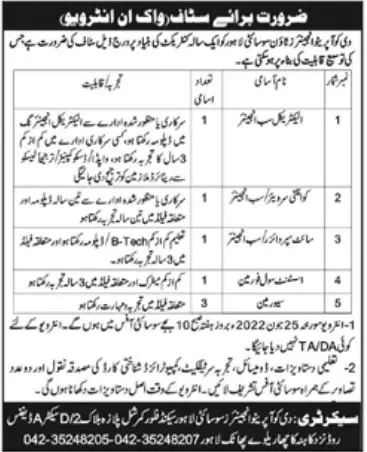 ضرورت برائے سٹاف (واک ان انٹرویو)
دی کوآپریٹو انجینئرز ٹاؤن سوسائٹی لاہور کو ایک سالہ کنٹریکٹ کی بنیاد پر درج ذیل سٹاف کی ضرورت ہے جس
کی توسیع قابلیت کی بناء پر ہو سکتی ہے۔
نمبر شمار نام آسامی تعداد اسامی تجربہ / قابلیت
1 الیکٹریکل سب انجینئر 1 سرکاری یا منظور شدہ ادارے سے الیکٹریکل انجینئرنگ
میں ڈپلومہ رکھتا ہو، کسی سرکاری ادارے میں کم از کم
3 سال کا تجربہ رکھتا ہو، واپڈا / ڈسکو کمپنیز / ترجیحاً لیسکو
سے ریٹائرڈ ملازمین کو ترجیح دی جائیگی
2 کوانٹٹی سرویئر / سب انجینئر 1 سرکاری یا منظور شدہ ادارے سے تین سالہ ڈپلومہ اور
متعلقہ فیلڈ میں تین سالہ تجربہ رکھتا ہو
3 سائٹ سپروائزر / سب انجینئر 1 تعلیم کم از کم B-Tech / ڈپلومہ رکھتا ہو اور متعلقہ فیلڈ
میں 3 سالہ تجربہ رکھتا ہو
4 اسسٹنٹ سول فورمین 1 کم از کم میٹرک اور متعلقہ فیلڈ میں 3 سالہ تجربہ رکھتا ہو
5 سیورمین 3 متعلقہ فیلڈ میں تجربہ و مہارت رکھتا ہو
1- انٹرویو مورخہ 25 جون 2022ء بروز ہفتہ صبح 10 بجے سوسائٹی آفس میں ہوں گے۔ انٹرویو کے لئے کوئی
TA/DA نہیں دیا جائیگا۔
2- تعلیمی دستاویزات، ڈومیسائل، تجربہ سرٹیفکیٹ، کمپیوٹرائزڈ شناختی کارڈ کی مصدقہ نقول اور دو عدد
تصاویر کے ہمراہ سوسائٹی آفس تشریف لائیں۔ انٹرویو کے وقت اصل دستاویزات دکھانا ہوں گی۔
سیکرٹری: دی کوآپریٹو انجینئرز سوسائٹی لاہور سیکنڈ فلور کمرشل پلازہ بلاک D/2 سیکٹر A ڈیفنس
روڈ نزد کاہنہ کاچھا ریلوے پھاٹک لاہور 042-35248207 042-35248205